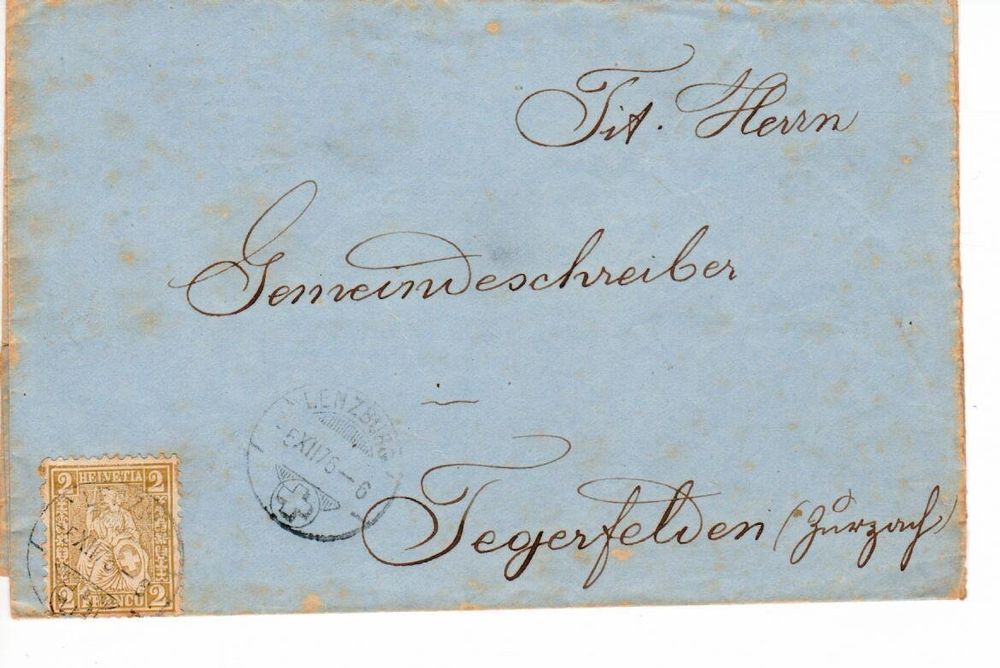 Tit. Herrn
Gemeindeschreiber
Tegerfelden (Zurzach)
LENZBURG
6 XII 76 – 6
2 HELVETIA 2
2 FRANCO 2